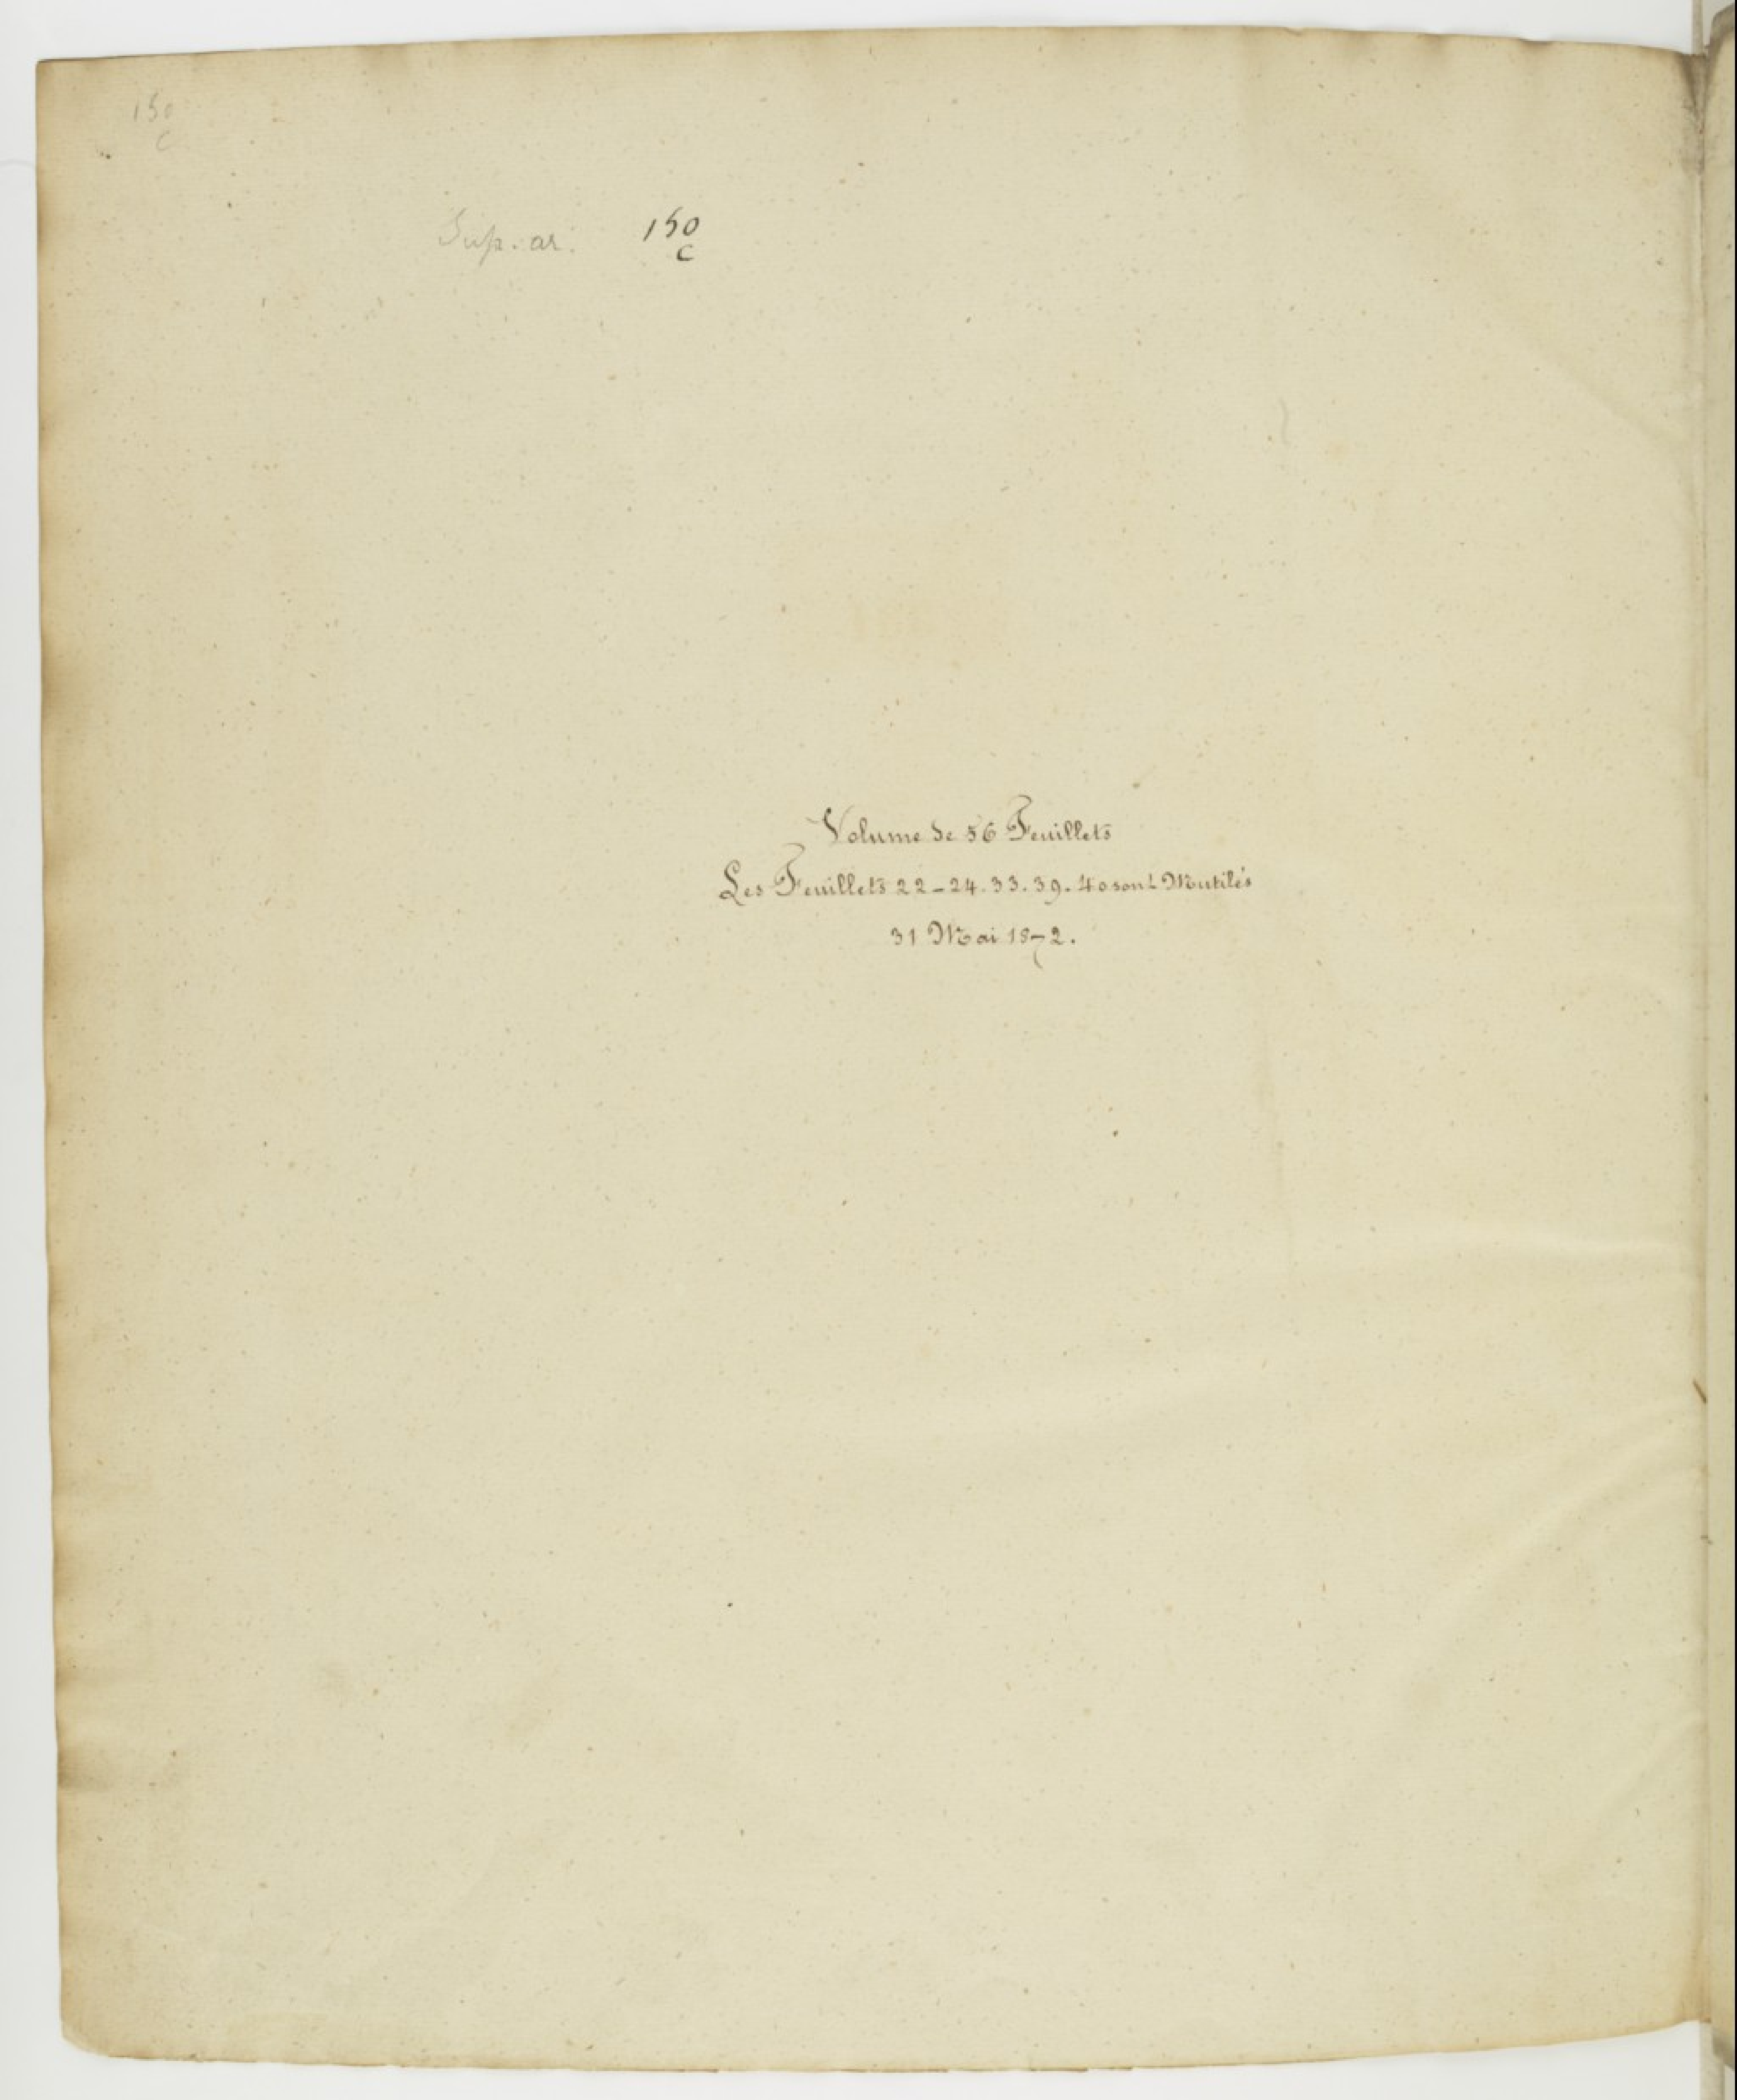 150
c
Sup. ar. 150
c
Volume de 56 Feuillets
Les Feuillets 22-24. 33. 39. 40 sont Mutilés
31 Mai 1872.